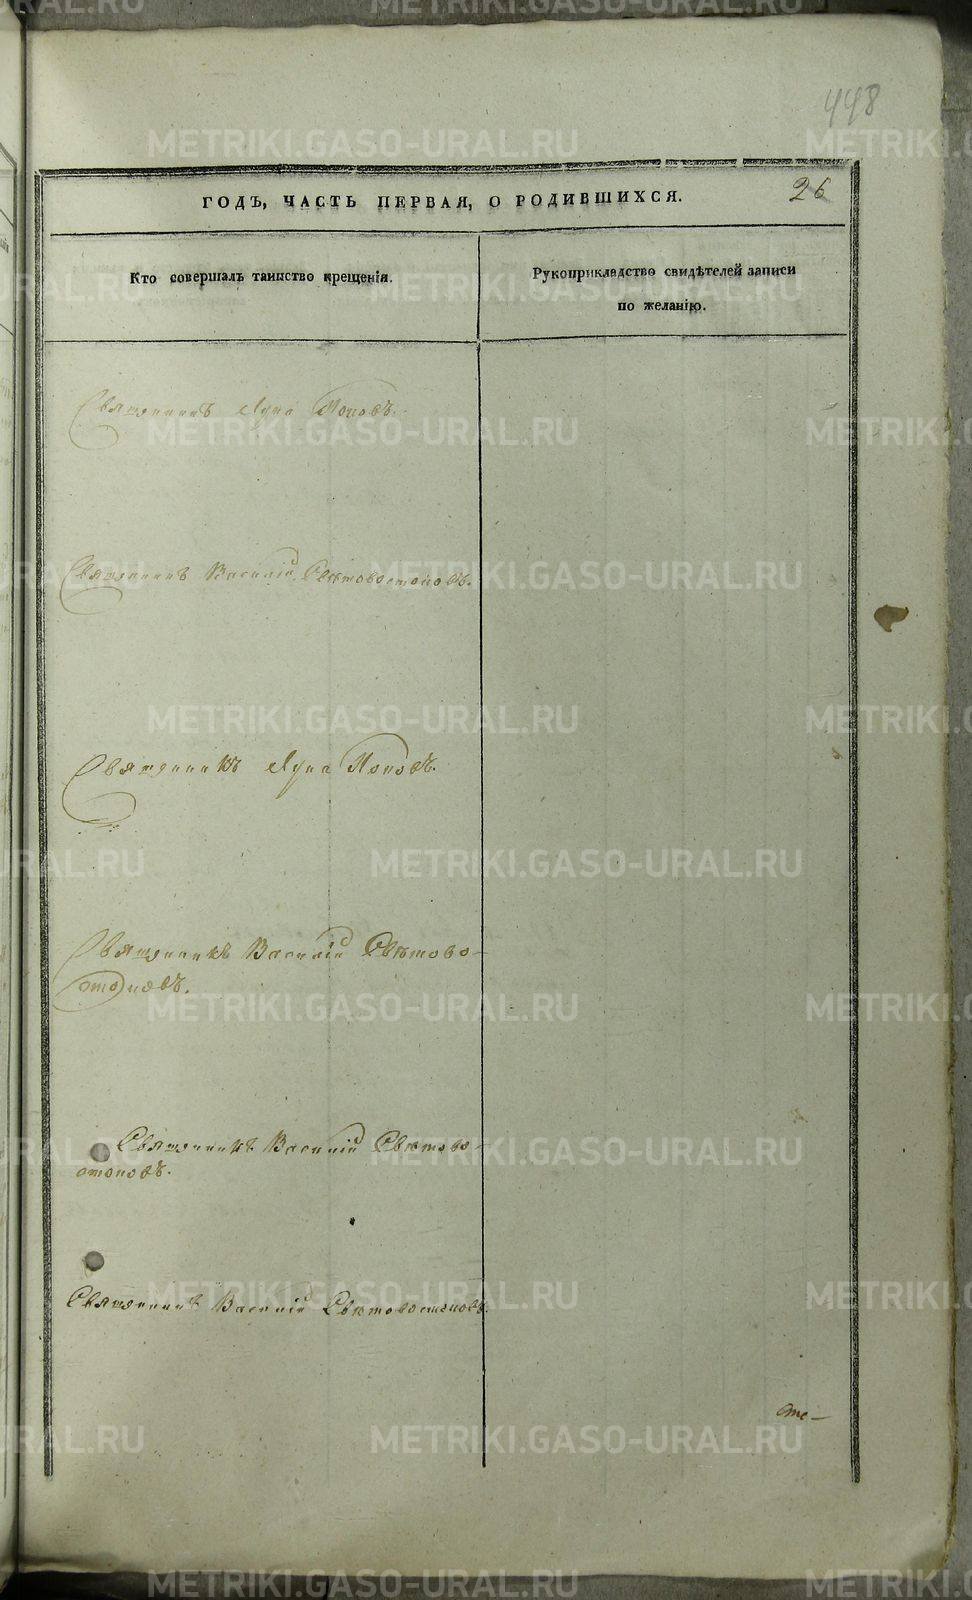 448
26
ГОДЪ, ЧАСТЬ ПЕРВАЯ, О РОДИВШИХСЯ.
Кто совершалъ таинство крещенія.
Рукоприкладство свидѣтелей записи
по желанію.
Священникъ Лука Поповъ.
Священникъ Василій Свѣтовостоковъ.
Священникъ Лука Поповъ.
Священникъ Василій Свѣтово-
стоковъ.
Священникъ Василій Свѣтово-
стоковъ.
Священникъ Василій Свѣтовостоковъ.
METRIKI.GASO-URAL.RU